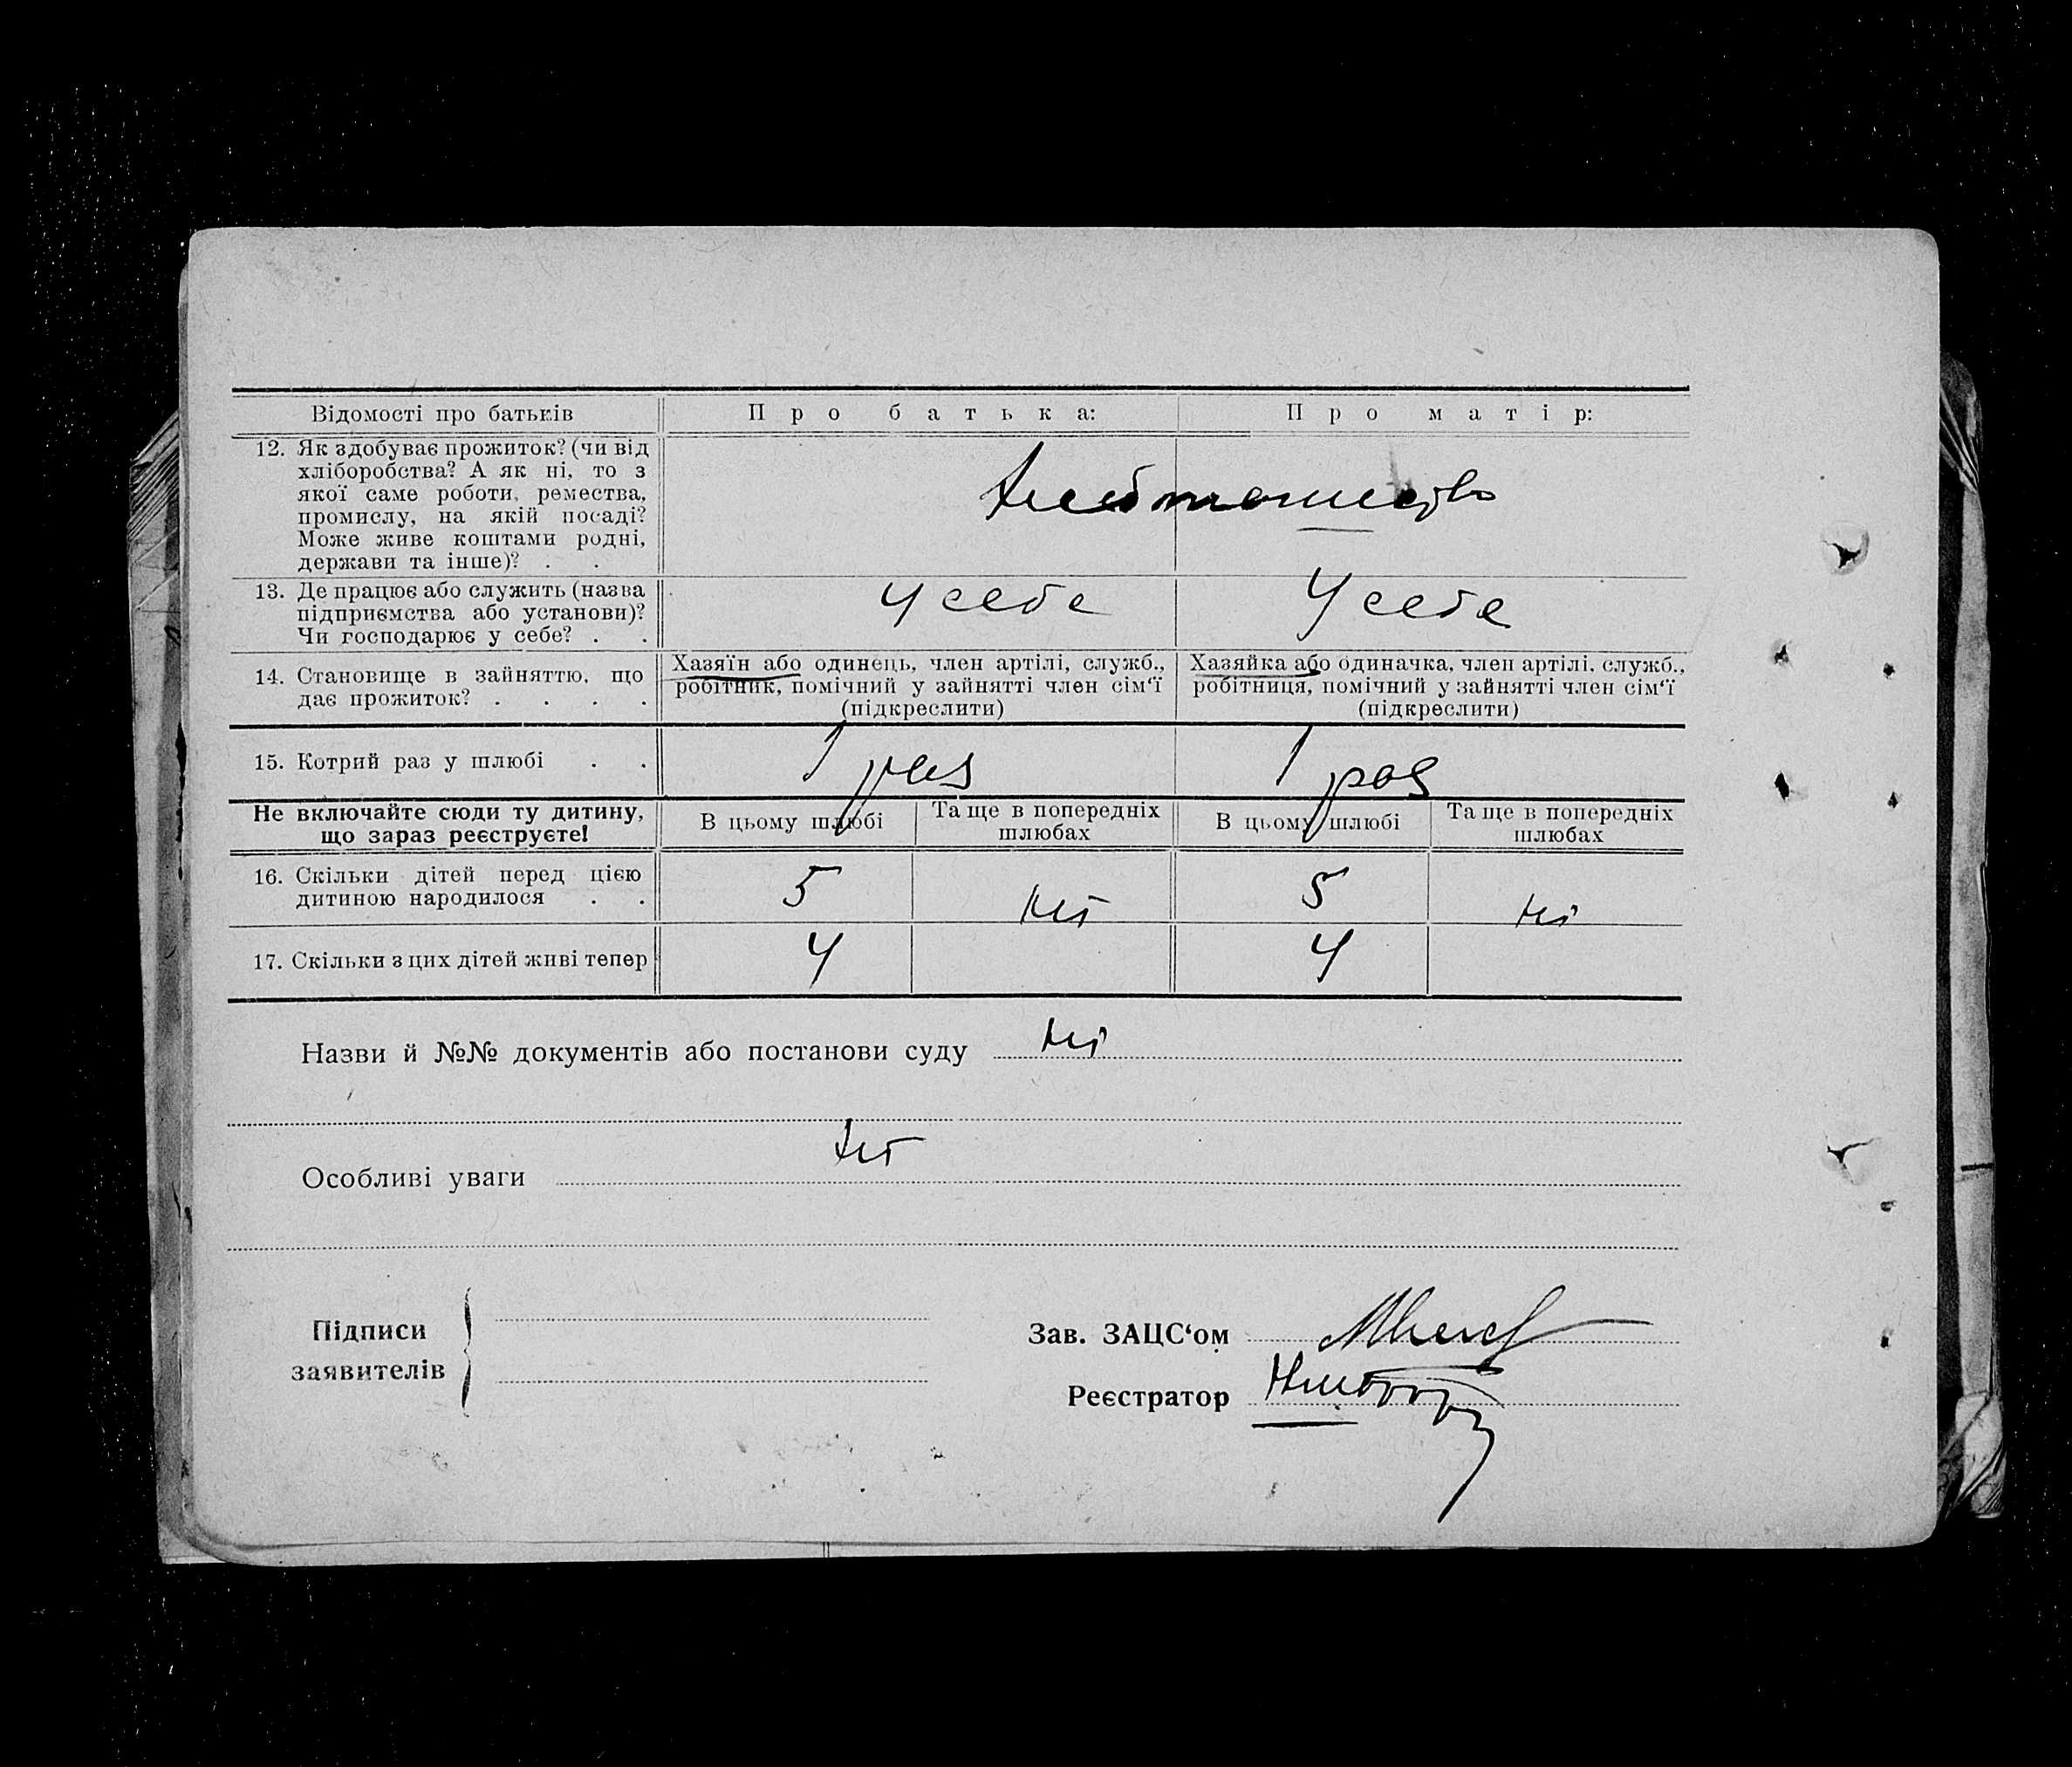 Відомості про батьків
Про батька:
Про матір:
12. Як здобуває прожиток? (чи від
хліборобства? А як ні, то з
якої саме роботи, ремества,
промислу, на якій посаді?
Може живе коштами родні,
держави та інше)? . .
13. Де працює або служить (назва
підприємства або установи)?
Чи господарює у себе? . .
У себе
У себе
14. Становище в зайняттю, що
дає прожиток? . . . .
Хазяїн або одинець, член артілі, служб.,
робітник, помічний у зайнятті член сім‘ї
(підкреслити)
Хазяйка або одиначка, член артілі, служб.,
робітниця, помічний у зайнятті член сім‘ї
(підкреслити)
15. Котрий раз у шлюбі . .
1 раз
1 раз
Не включайте сюди ту дитину,
що зараз реєструєте!
В цьому шлюбі
Та ще в попередніх
шлюбах
В цьому шлюбі
Та ще в попередніх
шлюбах
16. Скільки дітей перед цією
дитиною народилося . .
5
ні
5
ні
17. Скільки з цих дітей живі тепер
4
4
Назви й №№ документів або постанови суду ні
Особливі уваги ні
Підписи
заявителів
Зав. ЗАЦС‘ом
Реєстратор